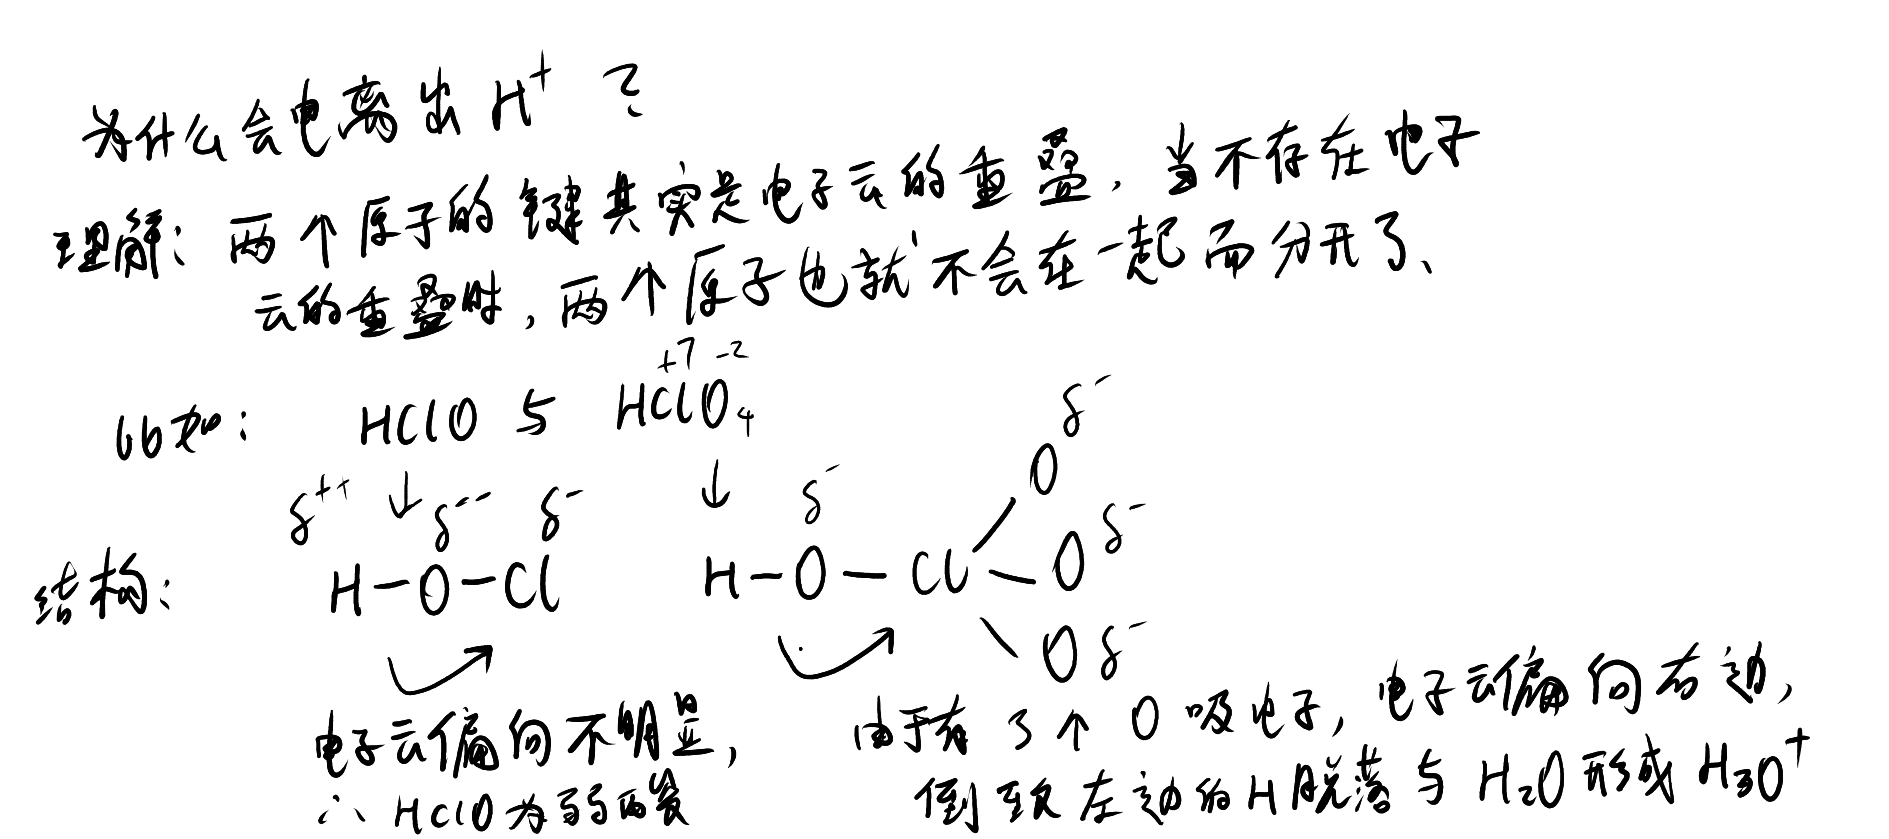 为什么会电离出 H⁺ ?
理解：两个原子的键其实是电子云的重叠，当不存在电子
云的重叠时，两个原子也就不会在一起而分开了、
+7 -2
比如： HClO 与 HClO₄
δ⁻
δ⁺⁺ ↓ δ⁻⁻ δ⁻ ↓ δ⁻ O
δ⁻
结构： H-O-Cl H-O-Cl O
O δ⁻
电子云偏向不明显， 由于有3个O吸电子，电子云偏向右边，
∴ HClO为弱酸 倒致左边的H脱落与H₂O形成H₃O⁺